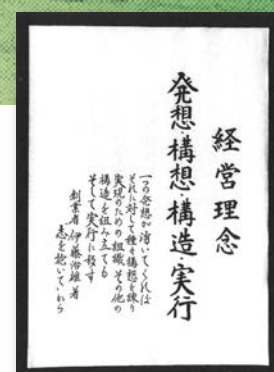 経営理念
発想・構想・構造・実行
一つの発想が湧いてくれば
それに対して種々構想を練り
実現のための組織、その他の
構造を組み立てる
そして実行に移す
創業者 伊藤治雄 著
志を抱いて、から